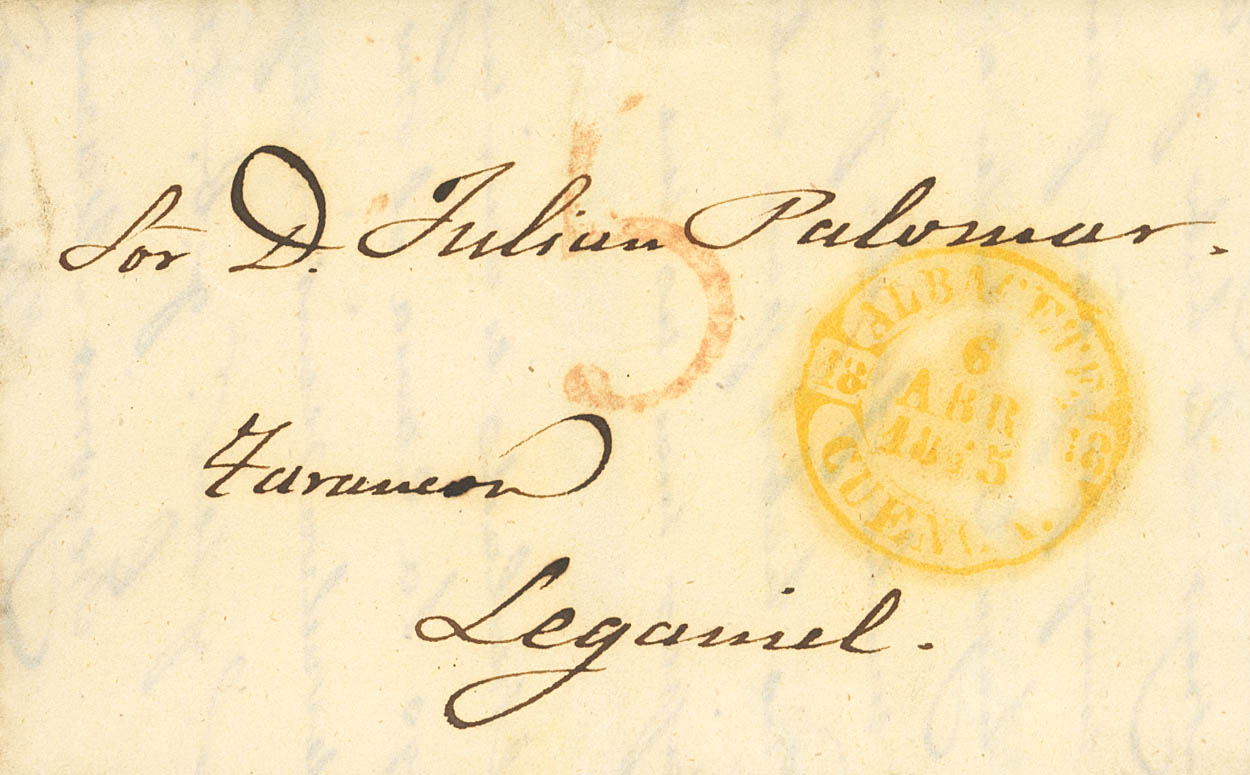 Sor D. Julian Palomar.
5
ALBACETE
18 18
6
ABR
1845
CUENCA.
Tarancon
Leganiel.